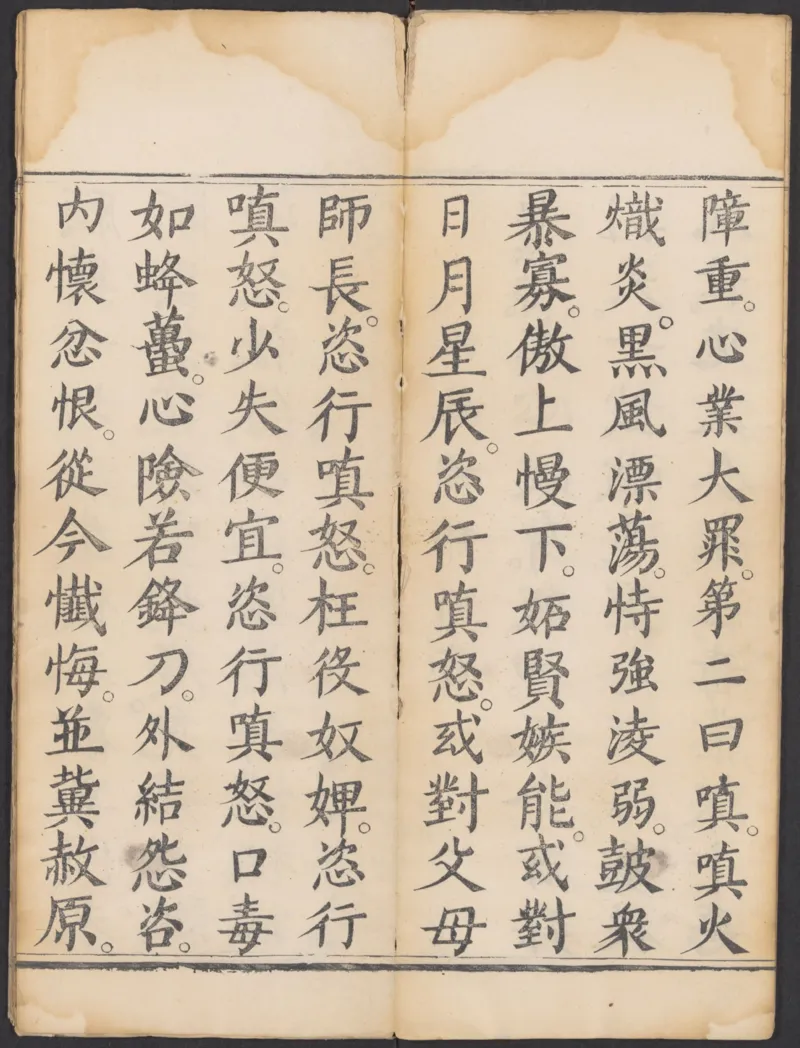 障重。心業大罪。第二曰嗔。嗔火
熾炎。黑風漂蕩。恃強凌弱。鼓衆
暴寡。傲上慢下。妬賢嫉能。或對
日月星辰。恣行嗔怒。或對父母
師長。恣行嗔怒。枉役奴婢。恣行
嗔怒。少失便宜。恣行嗔怒。口毒
如蜂蠆。心險若鋒刀。外結怨咨。
内懷忿恨。從今懺悔。並冀赦原。